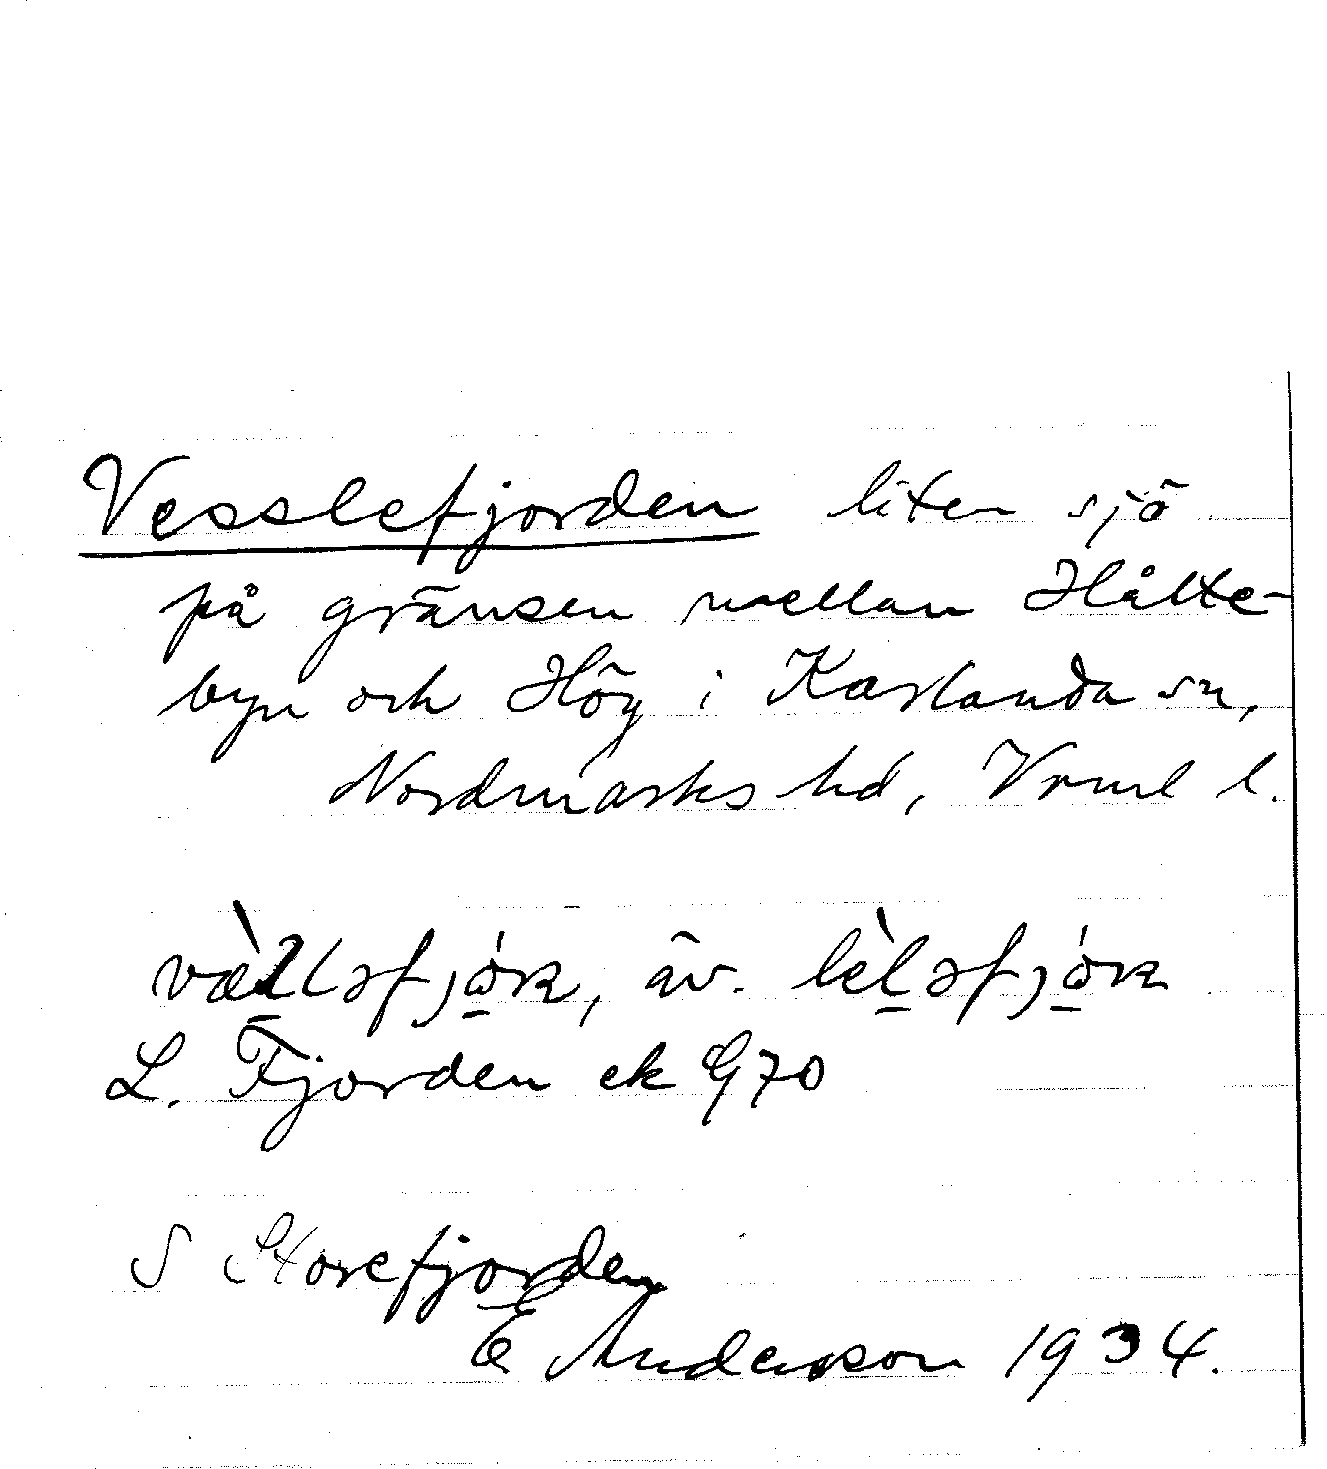 Vesslefjorden liten sjö
på gränsen mellan Hålte-
byn och Hög i Karlanda sn,
Nordmarks hd, Vrml l.
äv.
L. Fjorden ek G70
S Storefjorden
E Andersson 1934.